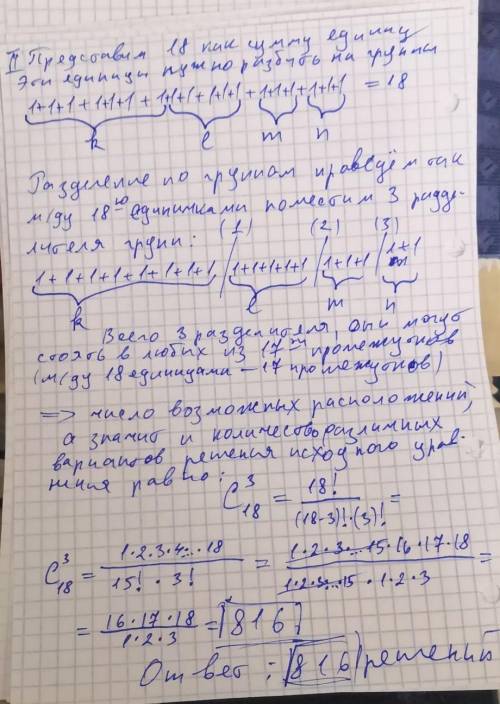 II Представим 18 как сумму единиц
Эти единицы нужно разбить на группы
1+1+1+1+1+1+1+1+1+1+1+1+1+1+1+1+1+1 = 18
k l m n
Разделение по группам проведём так
м/ду 18ю единичками поместим 3 разде-
лителя групп: (1) (2) (3)
1+1+1+1+1+1+1+1+1 / 1+1+1+1+1 / 1+1+1 / 1+1
k l m n
Всего 3 разделителя, они могут
стоять в любых из 17ти промежутков
(м/ду 18 единицами – 17 промежутков)
=> число возможных расположений,
а значит и количество различных
вариантов решения исходного урав-
нения равно:
C³₁₈ = 18! / (18-3)!·(3)! =
C³₁₈ = 1·2·3·4...·18 / 15!·3! = 1·2·3...15·16·17·18 / 1·2·3...15·1·2·3 =
= 16·17·18 / 1·2·3 = 816
Ответ: 816 решений